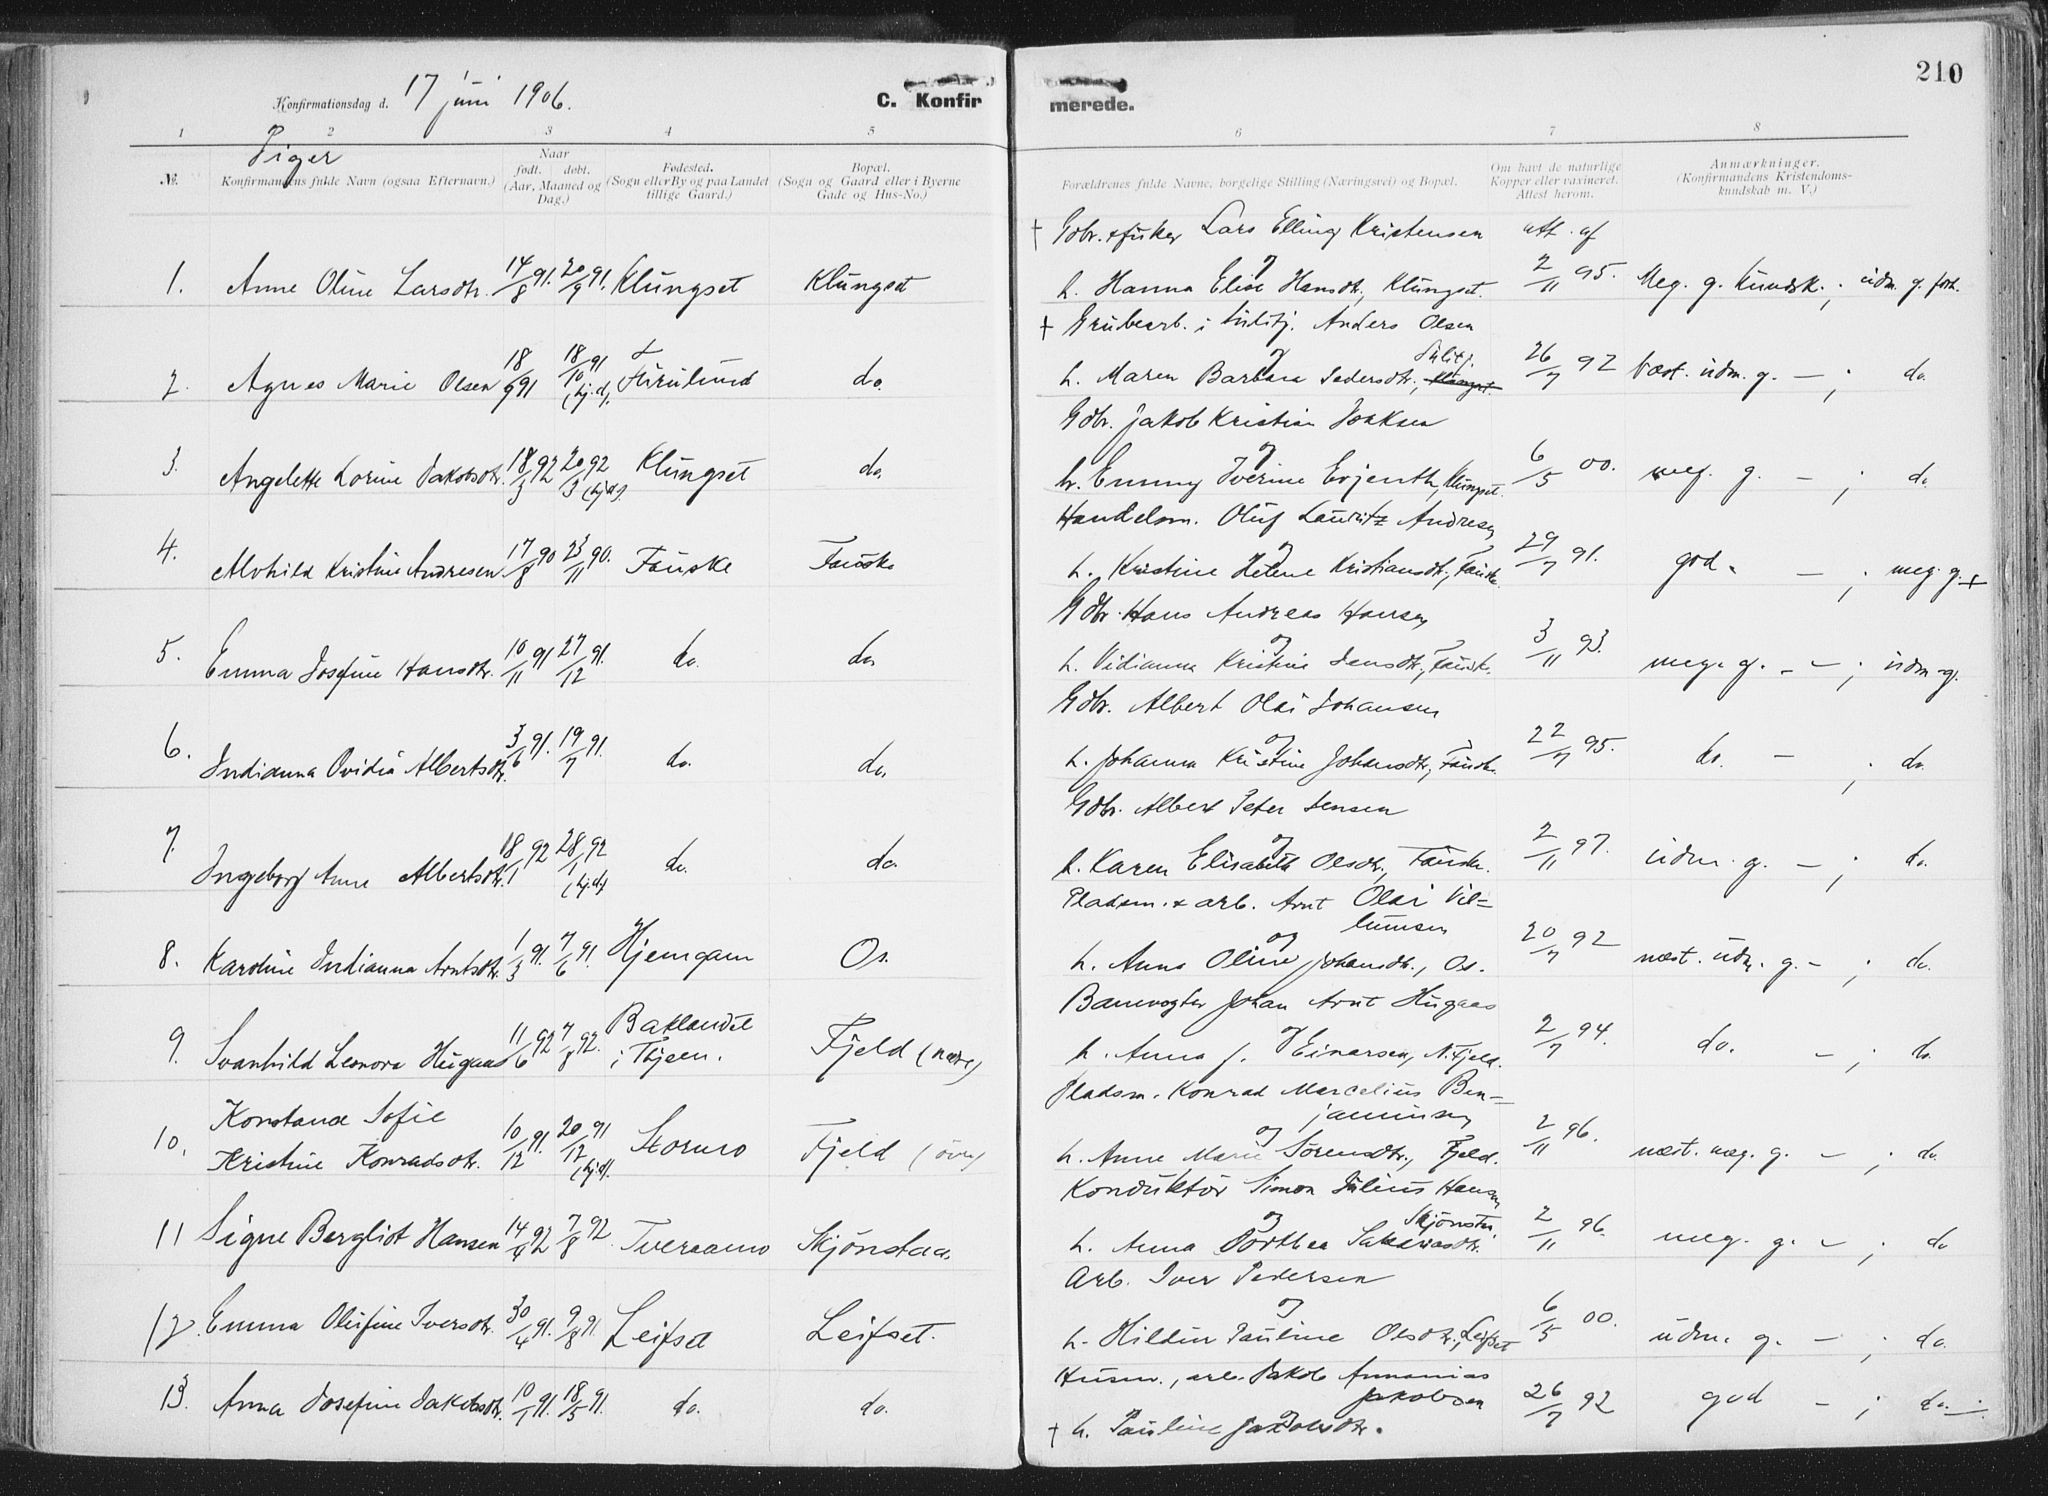 210
Konfirmationsdag d. 17 juni 1906.
C. Konfirmerede.
1 2 3 4 5 6 7 8
Piger
№. Konfirmandens fulde Navn (ogsaa Efternavn.) Naar født. døbt. (Aar, Maaned og Dag.) Fødested. (Sogn eller By og paa Landet tillige Gaard.) Bopæl. (Sogn og Gaard eller i Byerne Gade og Hus-No.) Forældrenes fulde Navne, borgelige Stilling (Næringsvei) og Bopæl. Om havt de naturlige Kopper eller vaxineret. Attest herom. Anmærkninger. (Konfirmandens Kristendomskundskab m. V.)
† Gdbr. & fisker Lars Elling Kristensen att. af
1. Anne Oline Larsdtr. 14/8 91. 20/9 91. Klungset Klungset og h. Hanna Elise Hansdtr., Klungset. 2/11 95. Meg. g. kundsk. ; udm. g. forh.
† Grubearb. i Sulitj. Anders Olsen
2. Agnes Marie Olsen 18/9 91 18/10 91 (hj.d.) Furulund do. og h. Maren Barbara Pedersdtr., Sulitj. 26/7 92 Næst. udm. g. — ; do.
Gdbr. Jakob Kristian Isaksen
3. Angelette Lorine Jakobsdtr. 18/3 92 20/3 92 (hj.d.) Klungset do. og h. Emmy Iverine Evjenth, Klungset. 6/5 00. meg. g. — ; do.
Handelsm. Oluf Lauritz Andresen
4. Alvhild Kristine Andresen 17/8 90 23/11 90. Fauske Fauske og h. Kristine Helene Kristiansdtr., Fauske. 29/7 91. god. — ; meg. g. +
Gdbr. Hans Andreas Hansen
5. Emma Josefine Hansdtr. 10/11 91 27/12 91. do. do. og h. Vidianna Kristine Jensdtr., Fauske. 3/11 93. meg. g. — ; udm. g.
Gdbr. Albert Olai Johansen
6. Indianna Ovidia Albertsdtr. 3/6 91. 19/7 91. do. do. og h. Johanna Kristine Johansdtr., Fauske. 22/7 95. do. — ; do.
Gdbr. Albert Peter Jensen
7. Ingeborg Anne Albertsdtr. 18/1 92 28/1 92 (hj.d.) do. do. og h. Karen Elisabeth Olsdtr., Fauske. 2/11 97. udm. g. — ; do.
Pladsm. & arb. Arnt Olai Villumsen
8. Karoline Indianna Arntsdtr. 1/3 91. 7/6 91. Hjemgam Os. og h. Anna Oline Johansdtr., Os. 20/7 92 næst. udm. g. — ; do.
Banevogter Johan Arnt Hugaas
9. Svanhild Leonora Hugaas 11/6 92 7/8 92. Baklandet i Thjem. Fjeld (nedre) og h. Anna J. Einarsen, N. Fjeld. 2/7 94. do. — ; do.
Pladsm. Konrad Marcelius Benjaminsen
10. Konstance Sofie Kristine Konradsdtr. 10/12 91. 20/12 91 (hj.d.) Stormo Fjeld (övre) og h. Anne Marie Sörensdtr., Fjeld. 2/11 96. næst. meg. g. — ; do.
Konduktör Simon Julius Hansen
11 Signe Bergliot Hansen 14/4 92 7/8 92. Tveraamo Skjönstaa. og h. Anna Dorthea Sakariasdtr. Skjönstå 2/11 96. meg. g. — ; do
Arb. Iver Pedersen
12. Emma Olufine Iversdtr. 30/4 91. 9/8 91. Leifset Leifset. og h. Hildur Pauline Olsdtr., Leifset 6/5 00. udm. g. — ; do.
Husm., arb. Jakob Annanias Jakobsen
13. Anna Josefine Jakobsdtr. 10/1 91. 18/5 91. do. do. og † h. Pauline Jakobsdtr. 26/7 92 god — ; do.